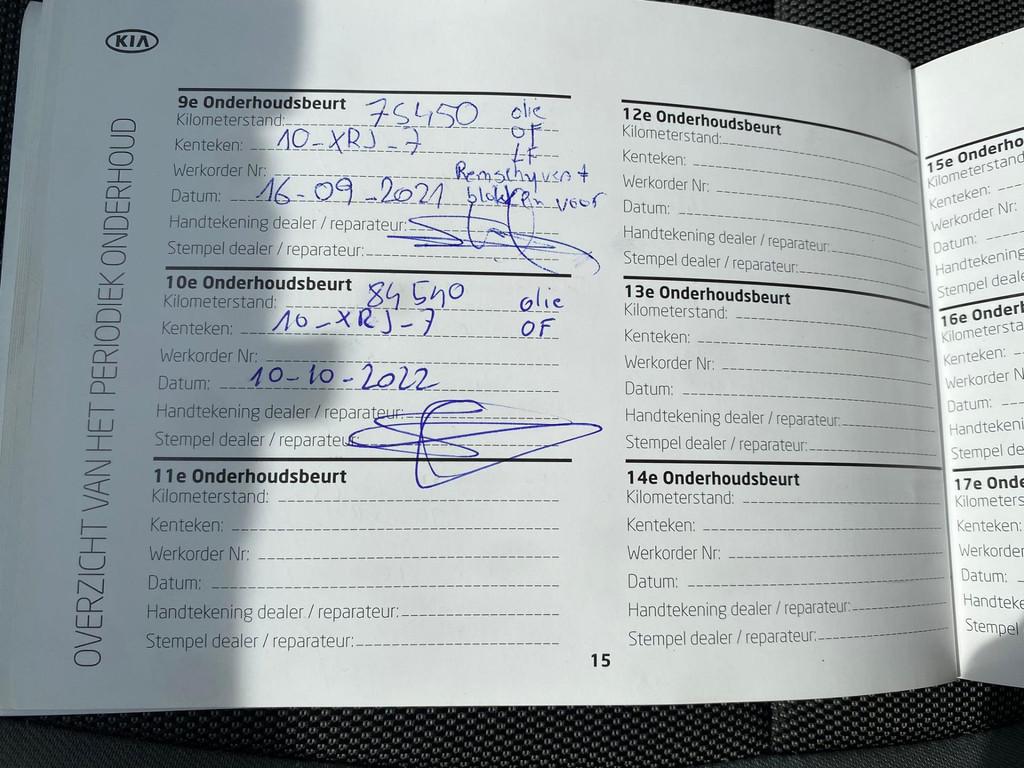 KIA
OVERZICHT VAN HET PERIODIEK ONDERHOUD
9e Onderhoudsbeurt
Kilometerstand: 75450 olie
OF
Kenteken: 10-XRJ-7
Werkorder Nr: Remschyven +
Datum: 16-09-2021 blokken voor
Handtekening dealer / reparateur:
Stempel dealer / reparateur:
10e Onderhoudsbeurt
Kilometerstand: 84540 olie
Kenteken: 10-XRJ-7 OF
Werkorder Nr:
Datum: 10-10-2022
Handtekening dealer / reparateur:
Stempel dealer / reparateur:
11e Onderhoudsbeurt
Kilometerstand:
Kenteken:
Werkorder Nr:
Datum:
Handtekening dealer / reparateur:
Stempel dealer / reparateur:
12e Onderhoudsbeurt
Kilometerstand:
Kenteken:
Werkorder Nr:
Datum:
Handtekening dealer / reparateur:
Stempel dealer / reparateur:
13e Onderhoudsbeurt
Kilometerstand:
Kenteken:
Werkorder Nr:
Datum:
Handtekening dealer / reparateur:
Stempel dealer / reparateur:
14e Onderhoudsbeurt
Kilometerstand:
Kenteken:
Werkorder Nr:
Datum:
Handtekening dealer / reparateur:
Stempel dealer / reparateur:
15
15e Onderho
Kilometerstand
Kenteken:
Werkorder Nr:
Datum:
Handtekening
Stempel deale
16e Onder
Kilometersta
Kenteken:
Werkorder N
Datum:
Handtekeni
Stempel de
17e Onde
Kilometers
Kenteken:
Werkorder
Datum:
Handteke
Stempel